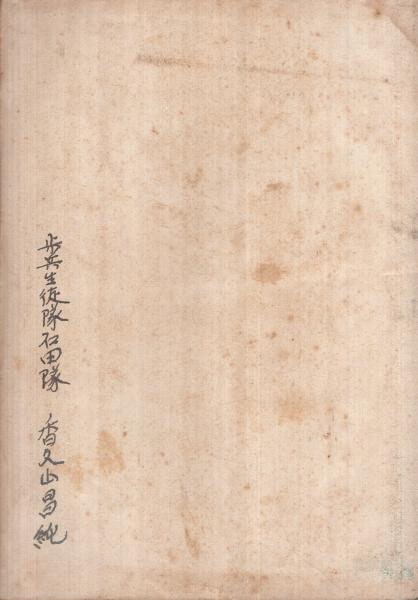 歩兵生徒隊石田隊　香久山昌純